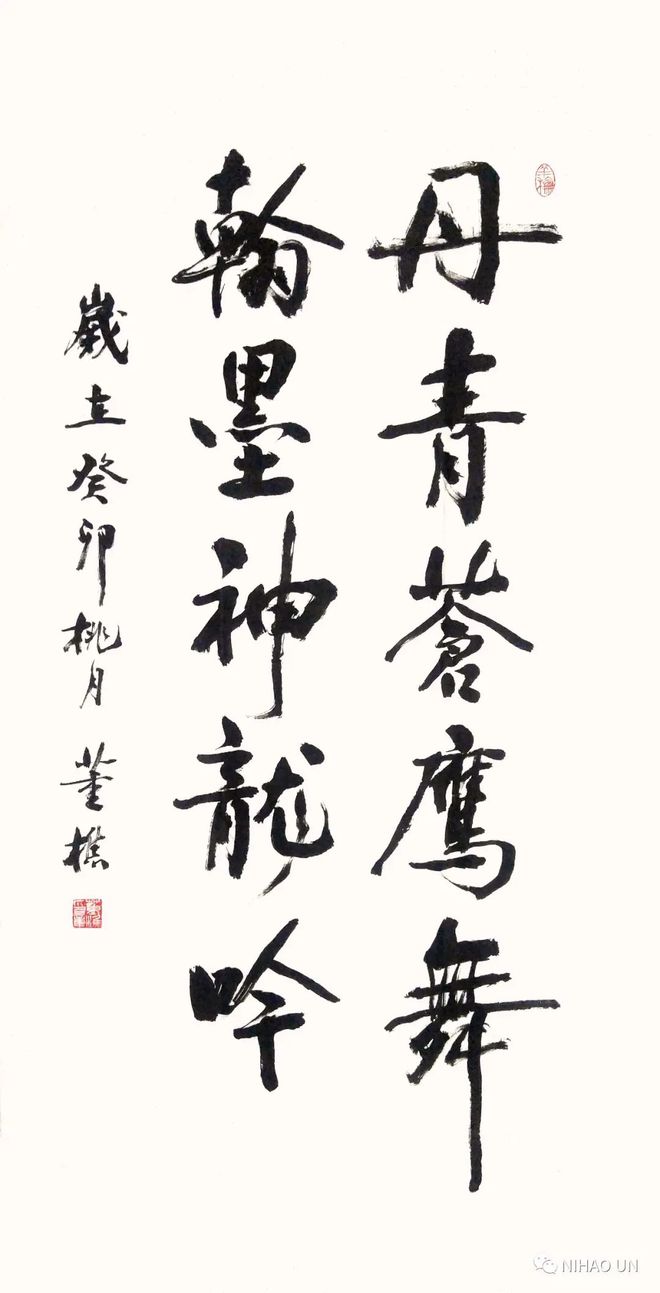 丹青蒼鷹舞
翰墨神龍吟
歲在癸卯桃月 董樵
NIHAO UN